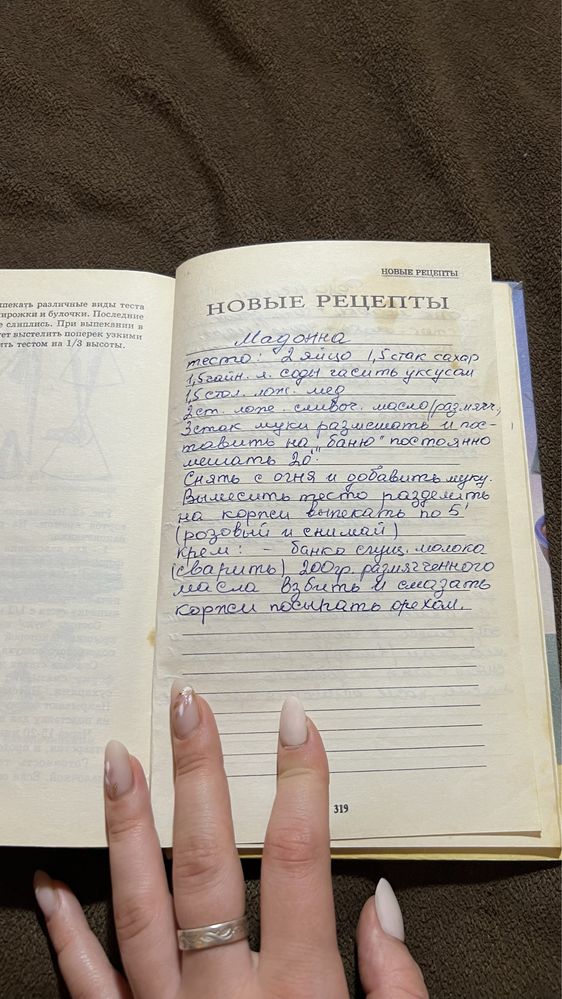 пекать различные виды теста
ирожки и булочки. Последние
е слиплись. При выпекании в
ет выстелить поперек узкими
ить тестом на 1/3 высоты.
НОВЫЕ РЕЦЕПТЫ
НОВЫЕ РЕЦЕПТЫ
Мадонна
тесто: 2 яйцо 1,5 стак сахар
1,5 чайн. л. соды гасить уксусом
1,5 стол. лож. мед
2 ст. лож. сливоч. масло (размягч.)
3 стак муки размешать и пос-
тавить на "баню" постоянно
мешать 20'.
Снять с огня и добавить муку.
Вымесить тесто разделить
на коржи выпекать по 5'
(розовый и снимай)
крем: - банка сгущ. молока
(сварить) 200гр. размягченного
масла Взбить и смазать
коржи посыпать орехом.
319